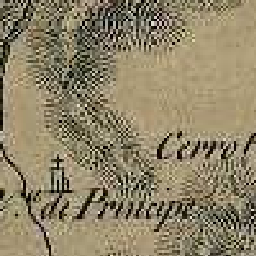 Cerro
de Principe